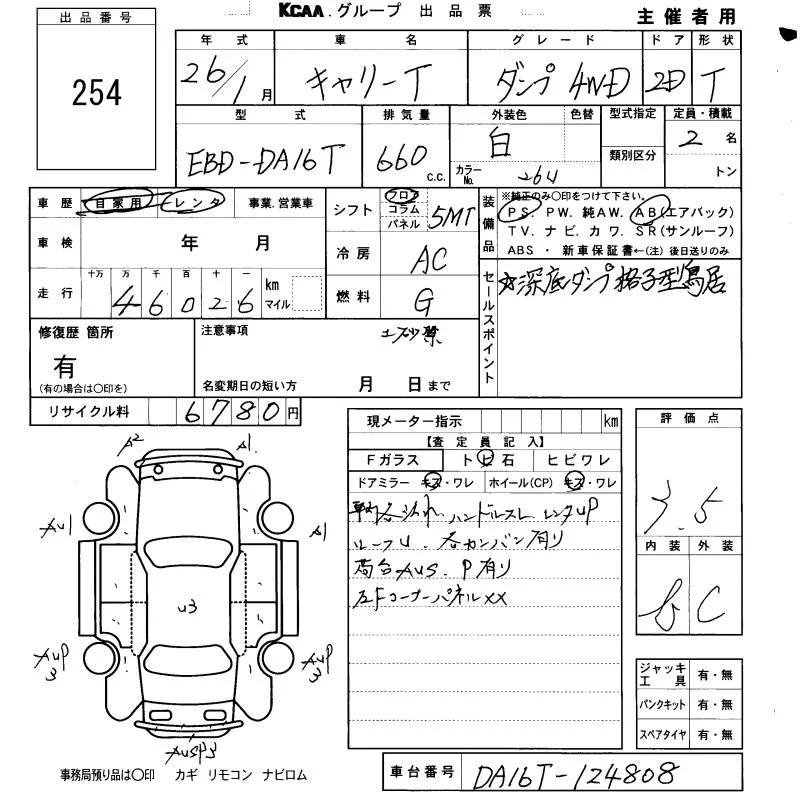 KCAA.グループ 出品票
主催者用
出品番号
254
年式 車名 グレード ドア 形状
26/1月 キャリーT ダンプ 4WD 2D T
型式 排気量 外装色 色替 型式指定 定員・積載
EBD-DA16T 660 c.c. 白 2名
カラーNo. 26U 類別区分 トン
車歴 自家用 レンタ 事業.営業車
シフト フロア コラム パネル 5MT
装備品
※純正のみ〇印をつけて下さい。
PS PW. 純AW. AB(エアバック)
TV. ナビ. カワ. SR(サンルーフ)
ABS ・ 新車保証書←(注) 後日送りのみ
車検 年 月
冷房 AC
走行 十万 万 千 百 十 一 km マイル
46026
燃料 G
セールスポイント
☆深底ダンプ 格子型鳥居
修復歴 箇所
有
(有の場合は〇印を)
注意事項
名変期日の短い方 月 日まで
リサイクル料 6780円
現メーター指示 km
【査定員記入】
Fガラス トビ石 ヒビワレ
ドアミラー キズ・ワレ ホイール(CP) キズ・ワレ
ハンドルスレ レンタUP
ルーフU. 各カンバン有り
荷台AUS. P有り
左Fコーナーパネルxx
評価点
3.5
内装 外装
b C
A2 A1
AU1 A1
U3
AUP3 AUP3
AUSP3
ジャッキ工具 有・無
パンクキット 有・無
スペアタイヤ 有・無
事務局預り品は〇印 カギ リモコン ナビロム
車台番号 DA16T-124808